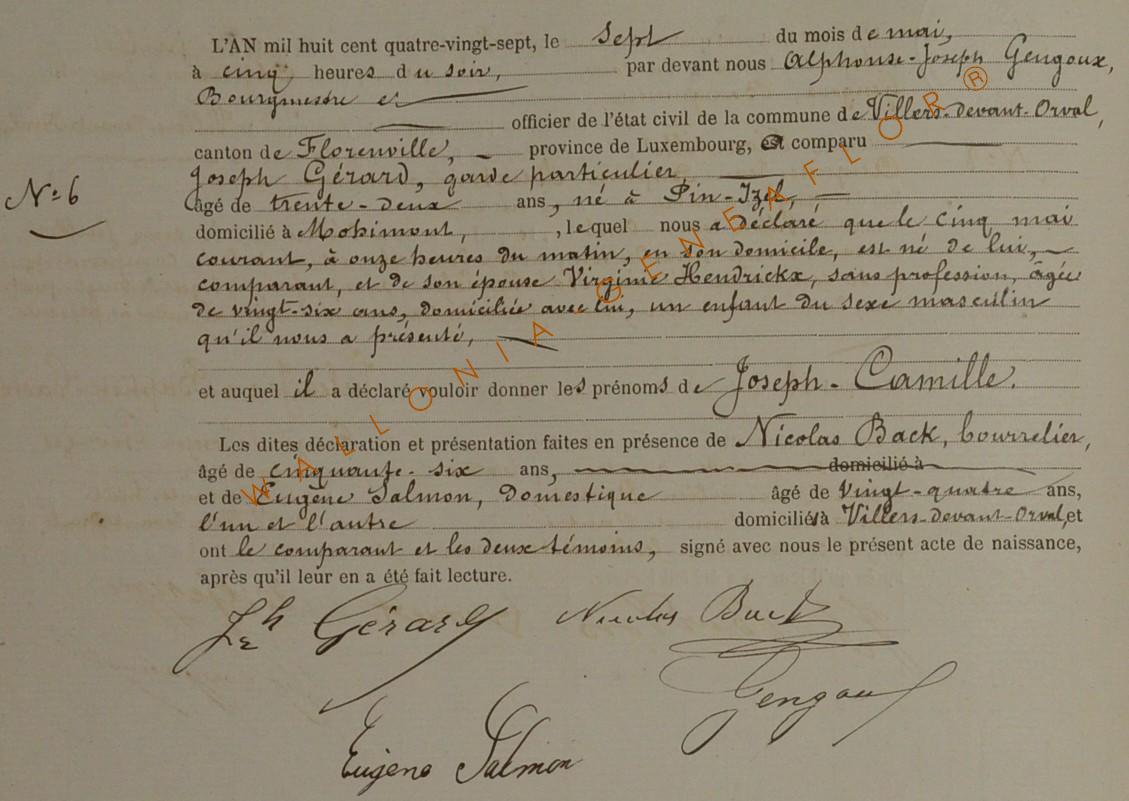 L'AN mil huit cent quatre-vingt-sept, le sept du mois de mai,
à cinq heures du soir, par devant nous Alphonse-Joseph Gengoux,
Bourgmestre et
officier de l'état civil de la commune de Villers-devant-Orval,
canton de Florenville, province de Luxembourg, est comparu
Joseph Gérard, garde particulier,
N° 6
âgé de trente-deux ans, né à Pin-Izel,
domicilié à Mohimont, , lequel nous a déclaré que le cinq mai
courant, à onze heures du matin, en son domicile, est né de lui,
comparant, et de son épouse Virginie Hendrickx, sans profession, âgée
de vingt-six ans, domiciliée avec lui, un enfant du sexe masculin
qu'il nous a présenté,
et auquel il a déclaré vouloir donner les prénoms de Joseph-Camille.
Les dites déclaration et présentation faites en présence de Nicolas Back, bourrelier,
âgé de cinquante-six ans, domicilié à
et de Eugène Salmon, domestique âgé de vingt-quatre ans,
l'un et l'autre domiciliés à Villers-devant-Orval, et
ont le comparant et les deux témoins, signé avec nous le présent acte de naissance,
après qu'il leur en a été fait lecture.
Jh Gérard Nicolas Back
Gengoux
Eugène Salmon
WALLONIA GENEAFLOR ®